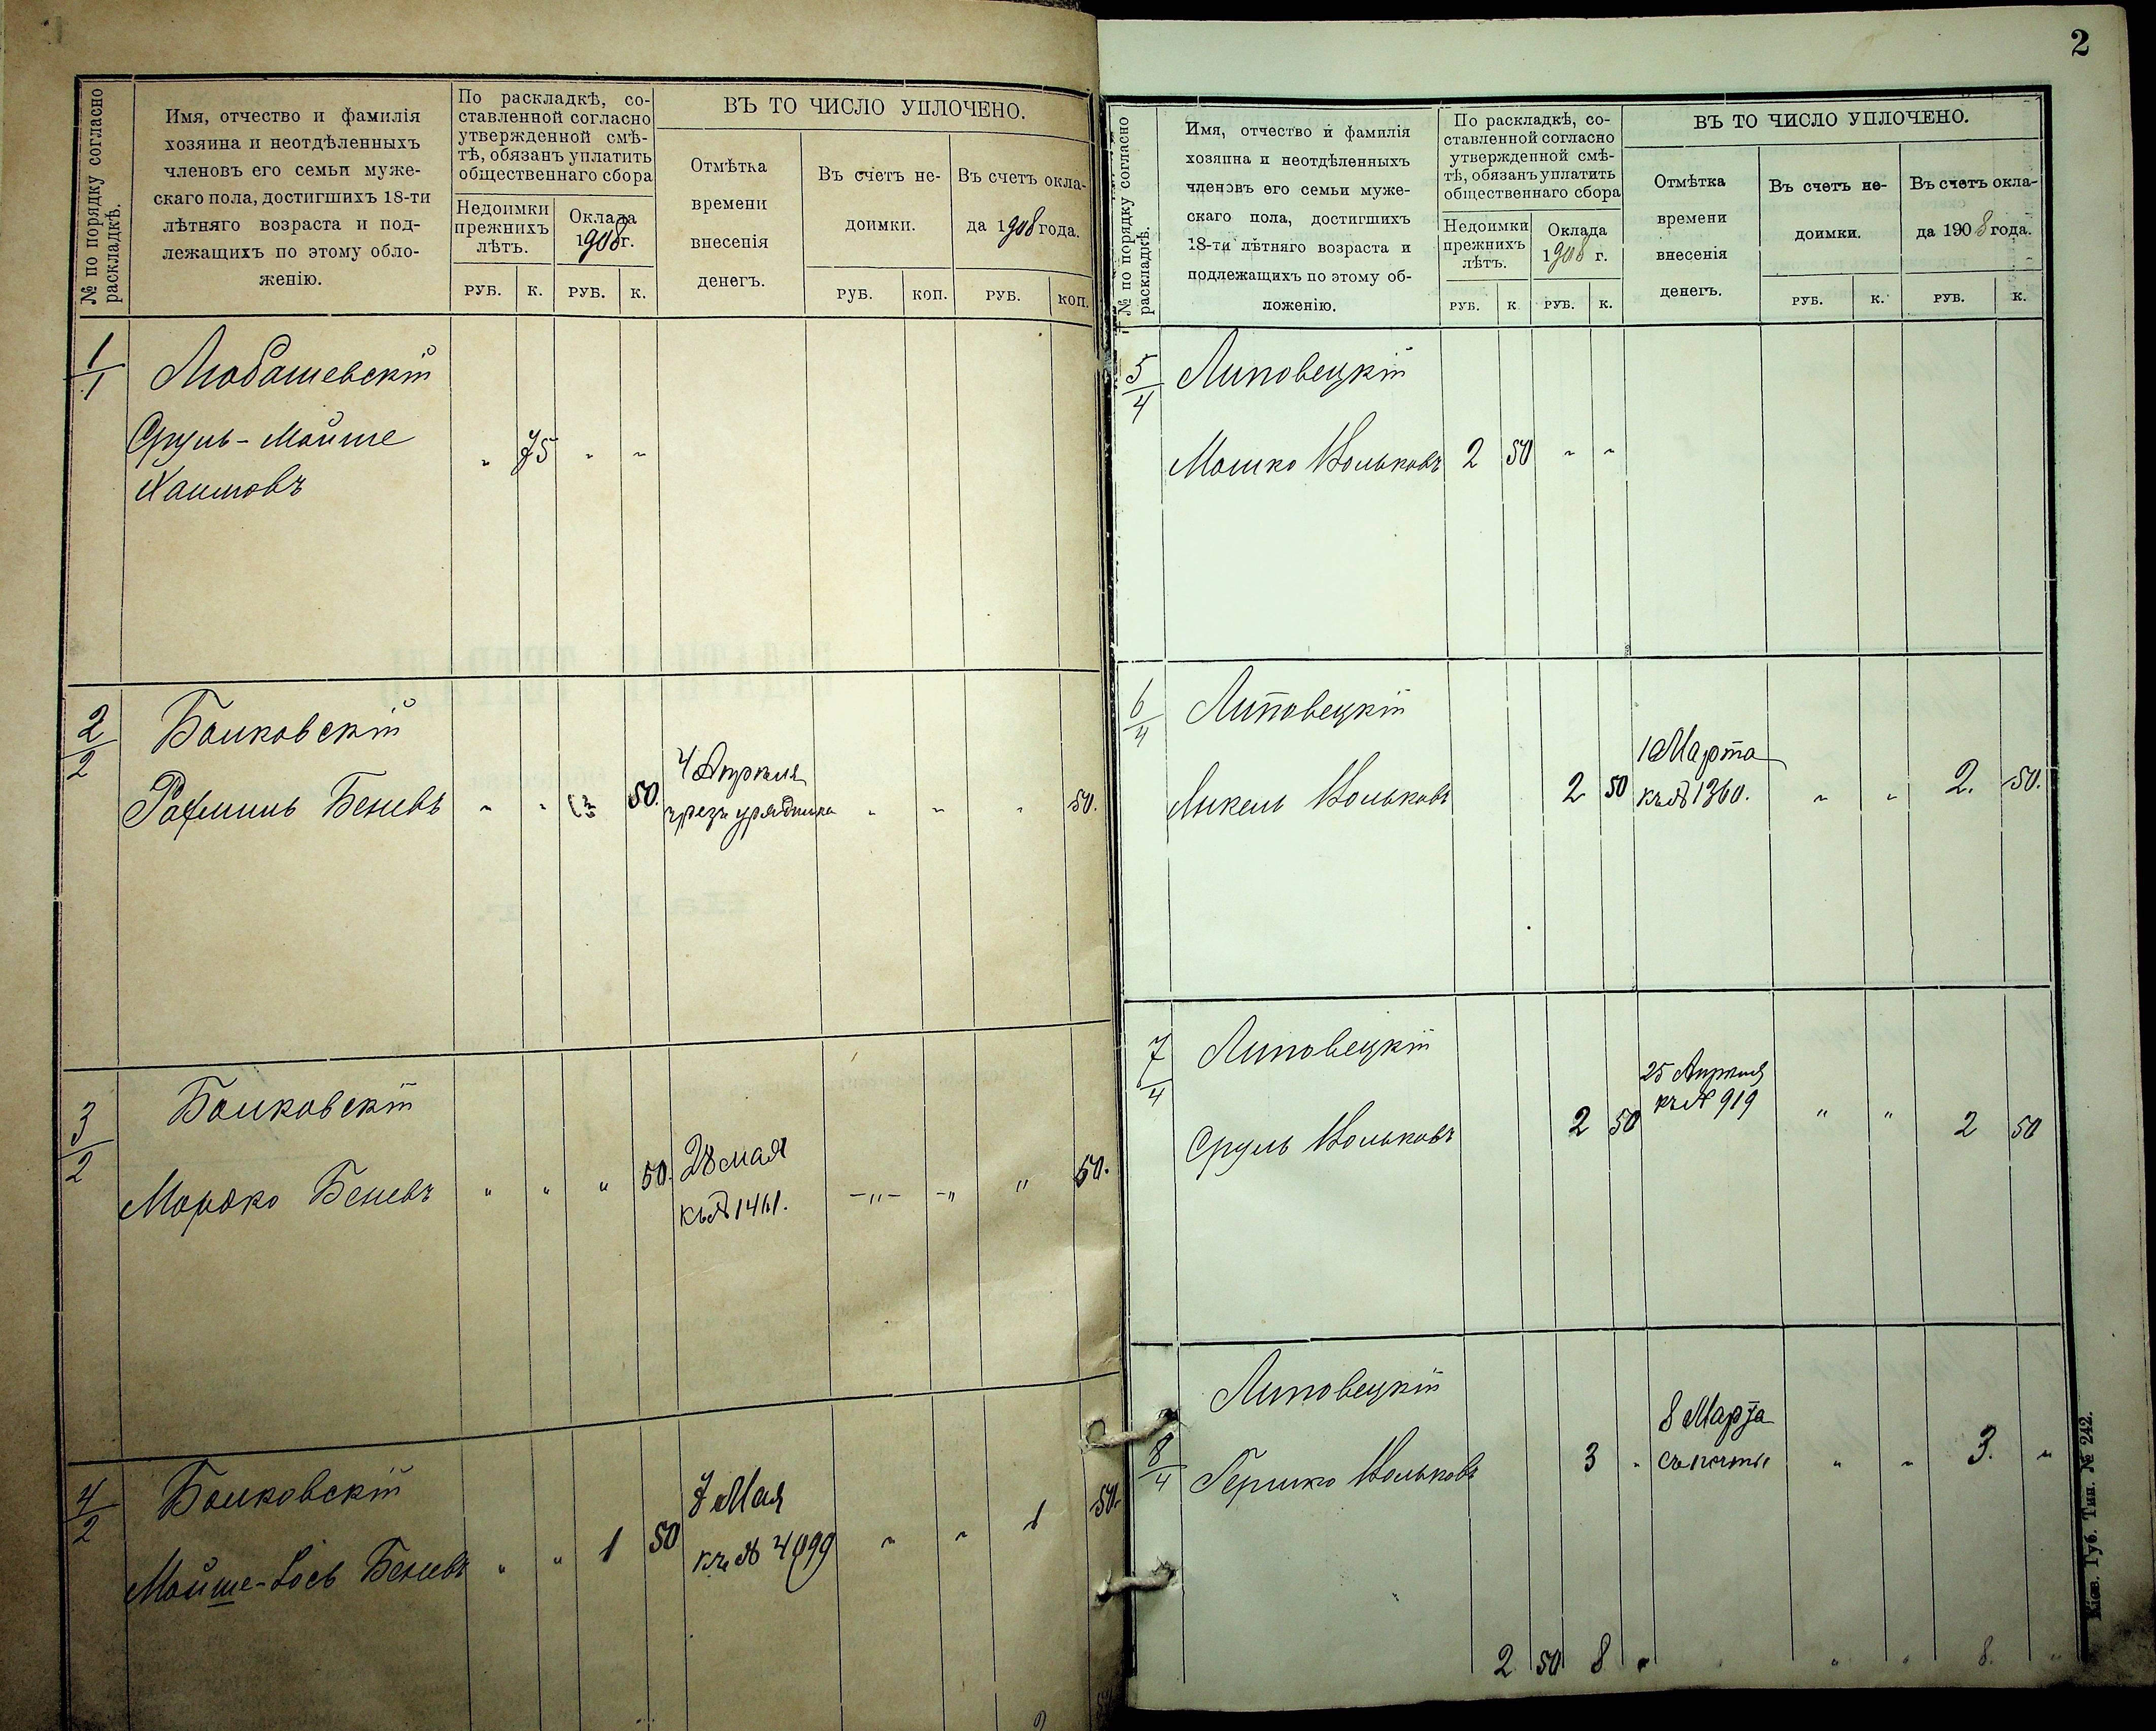 № по порядку согласно
раскладкѣ.
Имя, отчество и фамилія
хозяина и неотдѣленныхъ
членовъ его семьи муже-
скаго пола, достигшихъ 18-ти
лѣтняго возраста и под-
лежащихъ по этому обло-
женію.
По раскладкѣ, со-
ставленной согласно
утвержденной смѣ-
тѣ, обязанъ уплатить
общественнаго сбора
Недоимки
прежнихъ
лѣтъ.
Оклада
1908г.
РУБ. К. РУБ. К.
ВЪ ТО ЧИСЛО УПЛОЧЕНО.
Отмѣтка
времени
внесенія
денегъ.
Въ счетъ не-
доимки.
Въ счетъ окла-
да 1908 года.
РУБ. КОП. РУБ. КОП.
1/1 Любашевскій
Сруль-Мойше " 75 " "
Хаимовъ
2/2 Волковскій
Беневъ " " 50. 4 Апрѣля
чрезъ урядника " " " 50.
3/2 Волковскій
Мордко Беневъ " " " 50. 28 мая
къ № 1461. -"- -" " 50.
4/2 Волковскій
Мойше-Іосъ Беневъ " " 1 50 7 Мая
къ № 4099 " " 1 50.
2
№ по порядку согласно
раскладкѣ.
Имя, отчество и фамилія
хозяина и неотдѣленныхъ
членовъ его семьи муже-
скаго пола, достигшихъ
18-ти лѣтняго возраста и
подлежащихъ по этому об-
ложенію.
По раскладкѣ, со-
ставленной согласно
утвержденной смѣ-
тѣ, обязанъ уплатить
общественнаго сбора
Недоимки
прежнихъ
лѣтъ.
Оклада
1908 г.
РУБ. К РУБ. К.
ВЪ ТО ЧИСЛО УПЛОЧЕНО.
Отмѣтка
времени
внесенія
денегъ.
Въ счетъ не-
доимки.
Въ счетъ окла-
да 1908 года.
РУБ. К. РУБ. К.
5/4 Липовецкій
Мошко Вольковъ 2 50 " "
6/4 Липовецкій
Янкель Вольковъ 2 50 1 Марта
къ № 1360. " " 2. 50.
7/4 Липовецкій
Сруль Вольковъ 2 50 25 Апрѣля
къ № 919 " " 2 50
8/4 Липовецкій
Гершко Вольковъ 3 " 8 Марта
съ почты " " 3. "
2 50 8 " " " 8. "
Кіев. Губ. Тип. № 242.